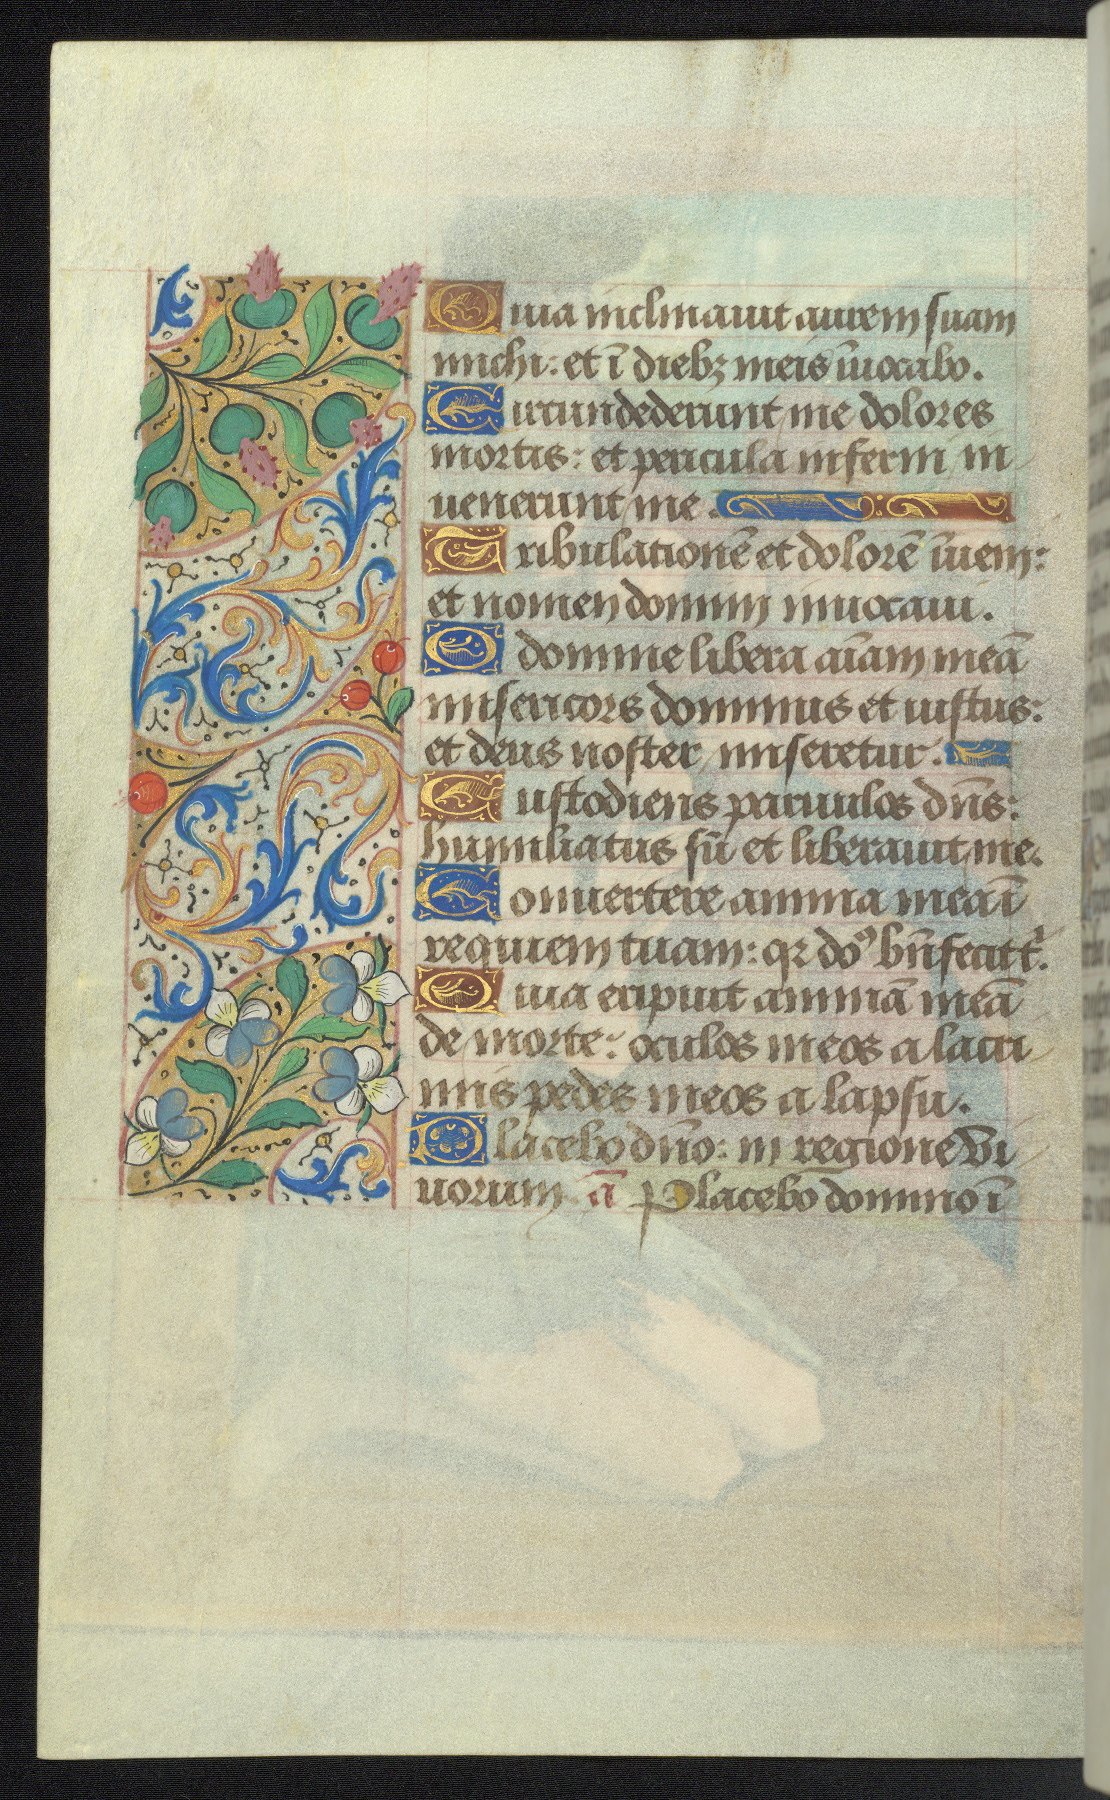 Quia inclinauit aurem suam
michi: et ī diebꝫ meis īuocabo.
Circundederunt me dolores
mortis: et pericula inferni in
uenerunt me.
Tribulationē et dolorē īueni:
et nomen domini inuocaui.
O domine libera aīam meā
misericors dominus et iustus:
et deus noster miseretur.
Custodiens paruulos dn̄s:
humiliatus sū et liberauit me.
Conuertere anima mea ī
requiem tuam: qr do᷒ bn̄fecit t̄.
Quia eripuit animā meā
de morte: oculos meos a lacri
mis pedes meos a lapsu.
Placebo dn̄o: in regione vi
uorum. ā Placebo domino ī